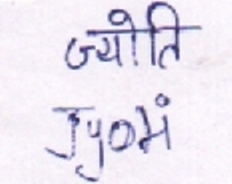 ज्योति
Jyoti